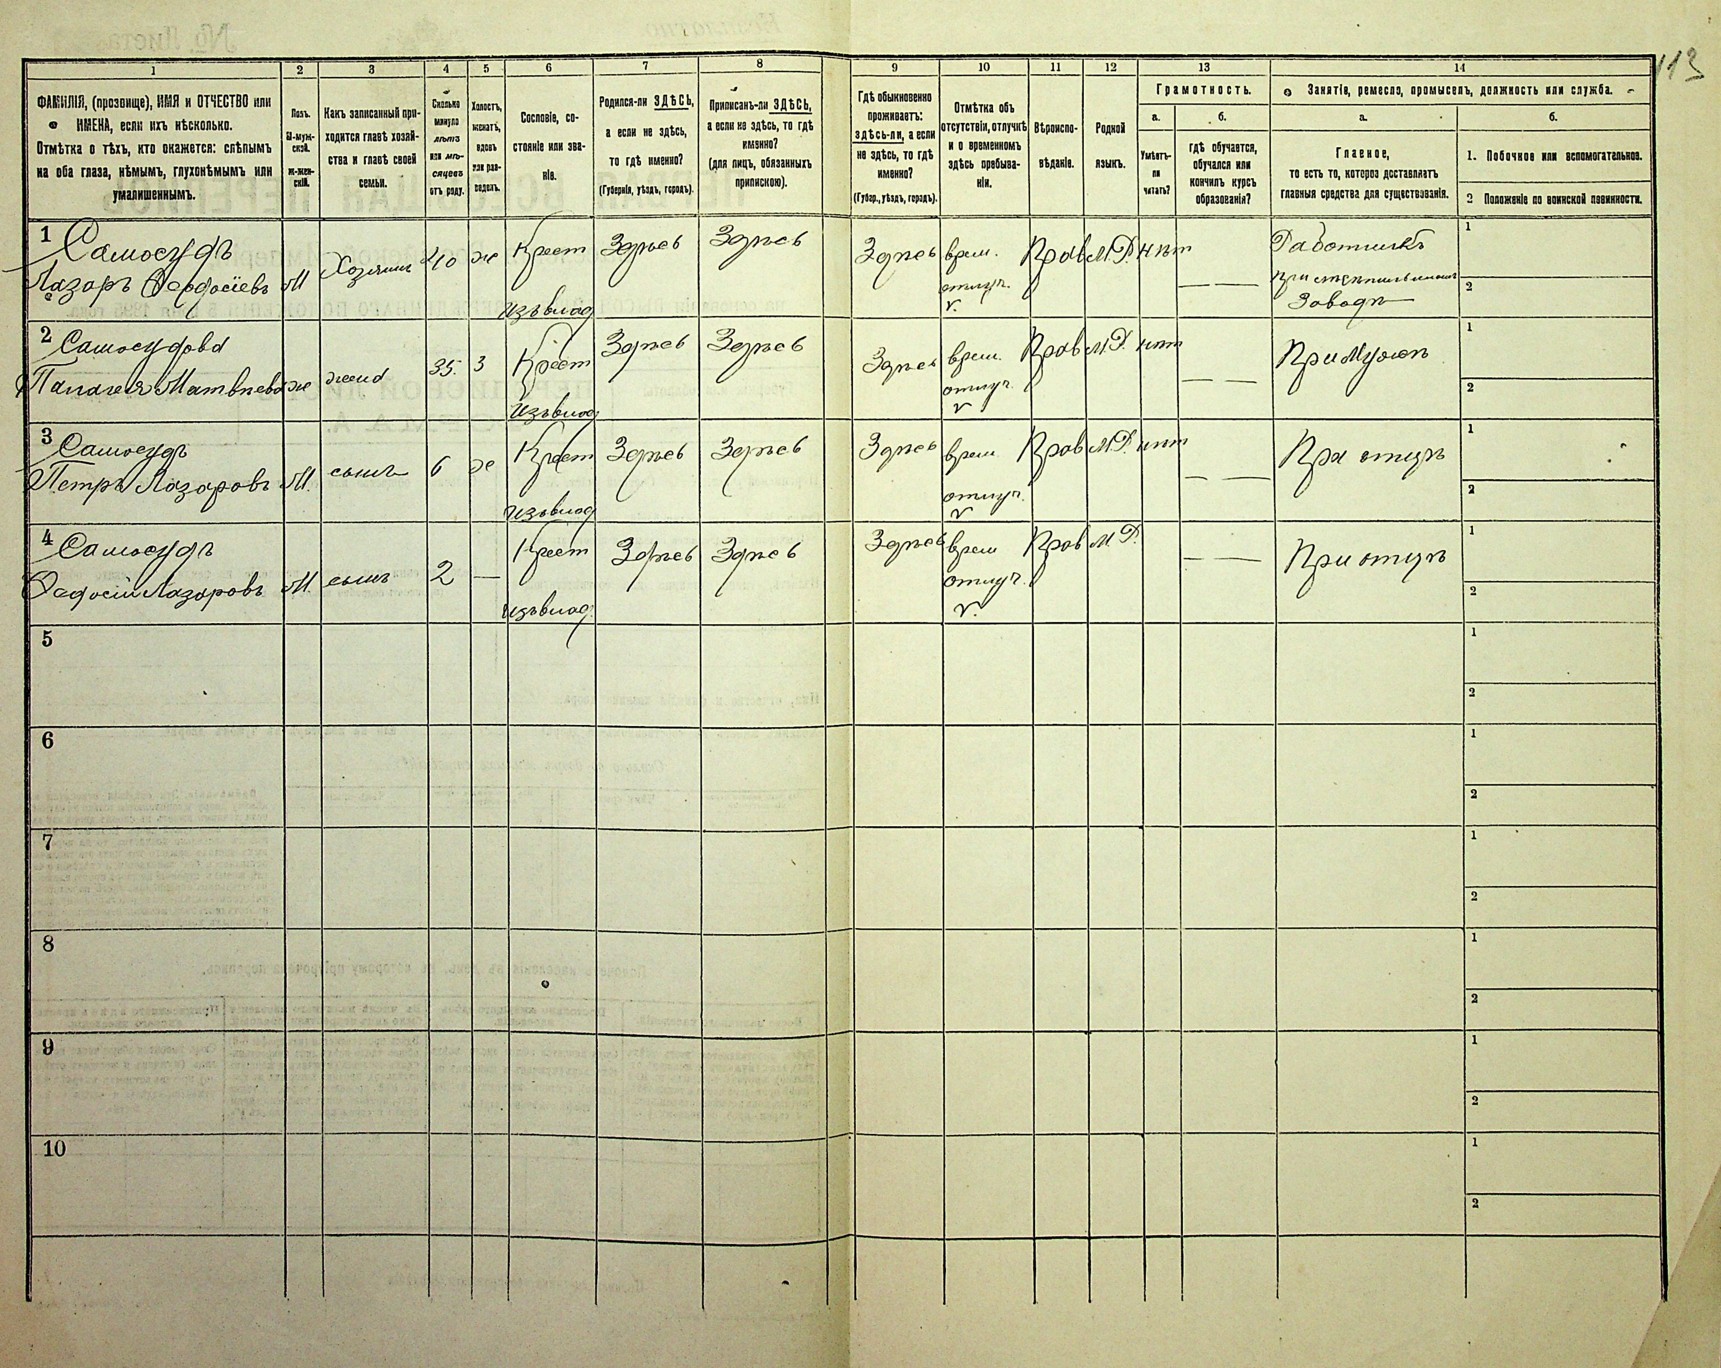 113
1 2 3 4 5 6 7 8 9 10 11 12 13 14
ФАМИЛІЯ, (прозвище), ИМЯ и ОТЧЕСТВО или
ИМЕНА, если ихъ нѣсколько.
Отмѣтка о тѣхъ, кто окажется: слѣпымъ
на оба глаза, нѣмымъ, глухонѣмымъ или
умалишеннымъ.
Полъ.
М-муж-
ской.
Ж-жен-
скій.
Какъ записанный при-
ходится главѣ хозяй-
ства и главѣ своей
семьи.
Сколько
минуло
лѣтъ
или мѣ-
сяцевъ
отъ роду.
Холостъ,
женатъ,
вдовъ
или раз-
веденъ.
Сословіе, со-
стояніе или зва-
ніе.
Родился-ли ЗДѢСЬ,
а если не здѣсь,
то гдѣ именно?
(Губернія, уѣздъ, городъ).
Приписанъ-ли ЗДѢСЬ,
а если не здѣсь, то гдѣ
именно?
(для лицъ, обязанныхъ
припискою).
Гдѣ обыкновенно
проживаетъ:
здѣсь-ли, а если
не здѣсь, то гдѣ
именно?
(Губер., уѣздъ, городъ).
Отмѣтка объ
отсутствіи, отлучкѣ
и о временномъ
здѣсь пребыва-
ніи.
Вѣроиспо-
вѣданіе.
Родной
языкъ.
Грамотность.
а.
Умѣетъ-
ли
читать?
б.
гдѣ обучается,
обучался или
кончилъ курсъ
образованія?
Занятіе, ремесло, промыселъ, должность или служба.
а.
Главное,
то есть то, которое доставляетъ
главныя средства для существованія.
б.
1. Побочное или вспомогательное.
2 Положеніе по воинской повинности.
1 Самосудъ
Лазаръ Федосіевъ М Хозяинъ 40 ж Крест изъ влад Здѣсь Здѣсь Здѣсь врем. отлуч. Прав М.Р. нѣт — — Работникъ
Заводѣ
1
2
2 Самосудова
Палагея Матвѣева ж жена 35 З Крест изъ влад Здѣсь Здѣсь Здѣсь врем. отлуч. Прав М.Р. нѣт — — При Мужѣ
1
2
3 Самосудъ
Петръ Лазаровъ М. сынъ 6 х Крест изъ влад Здѣсь Здѣсь Здѣсь врем. отлуч. Прав М.Р. нѣт — — При отцѣ
1
2
4 Самосудъ
Федосій Лазаровъ М. сынъ 2 — Крест изъ влад. Здѣсь Здѣсь Здѣсь врем отлуч. Прав М.Р. — — При отцѣ
1
2
5
1
2
6
1
2
7
1
2
8
1
2
9
1
2
10
1
2